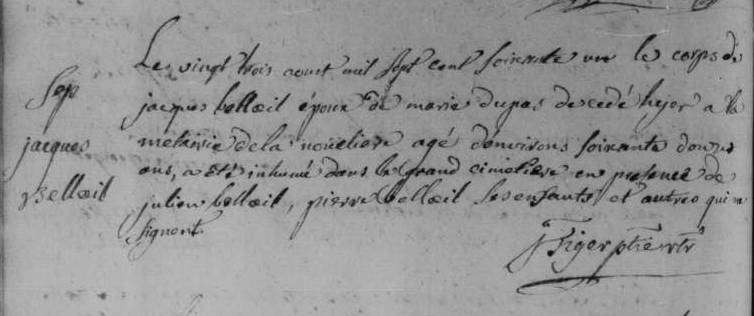 Sep
jacques
Bellœil
Le vingt trois aoust mil sept cent soixante un le corps de
jacques bellœil époux de marie dupas decedé hyer a la
metairie de la noueliere agé d'environs soixante douze
ans, a été inhumé dans le grand cimetiere en presence de
julien bellœil, pierre bellœil ses enfants et autres qui ne
signent